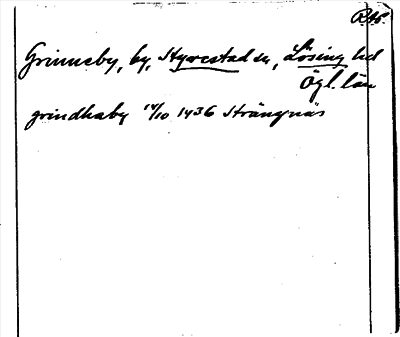 Grinneby, by, Styrestad sn, Lösing hd
Ögl. län
grindhaby 14/10 1436 Strängnäs